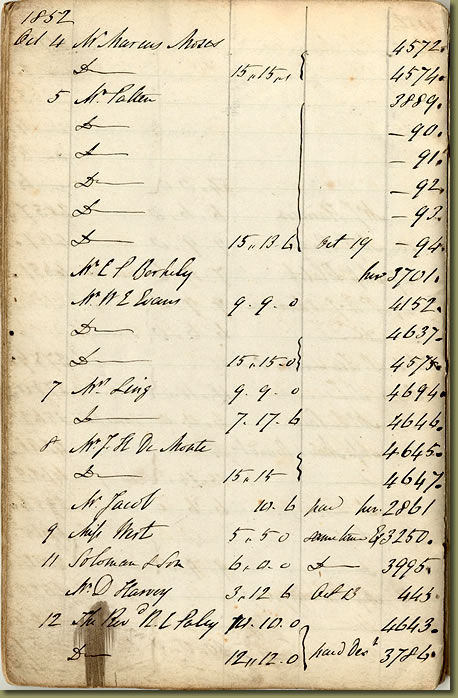 1852
Oct 4 Mr Marcus Moses 4572.
Do 15,,15,, 4574.
5 Mr Patten 3889.
Do –90.
Do –91.
Do –92.
Do –93.
Do 15,,13.6 Oct 19 –94.
Mr E P Berkely hire 3701.
Mr W E Evans 9.9.0 4152.
Do 4637.
Do 15,,15.0 4575.
7 Mr Ling 9.9.0 4694.
Do 7.17.6 4646.
8 Mr J. H De Monte 4645.
Do 15,,15 4647.
Mr Jacob 10.6 paid hire 2861
9 Miss West 5,,5 0 same time 3250.
11 Soloman & Son 6,,0.0 Do 3995.
Mr D Harvey 3,,12 6 Oct 13 445.
12 The Revd R. L Paley 10.10.0 4643.
Do 12,,12.0 paid Decr 3786.